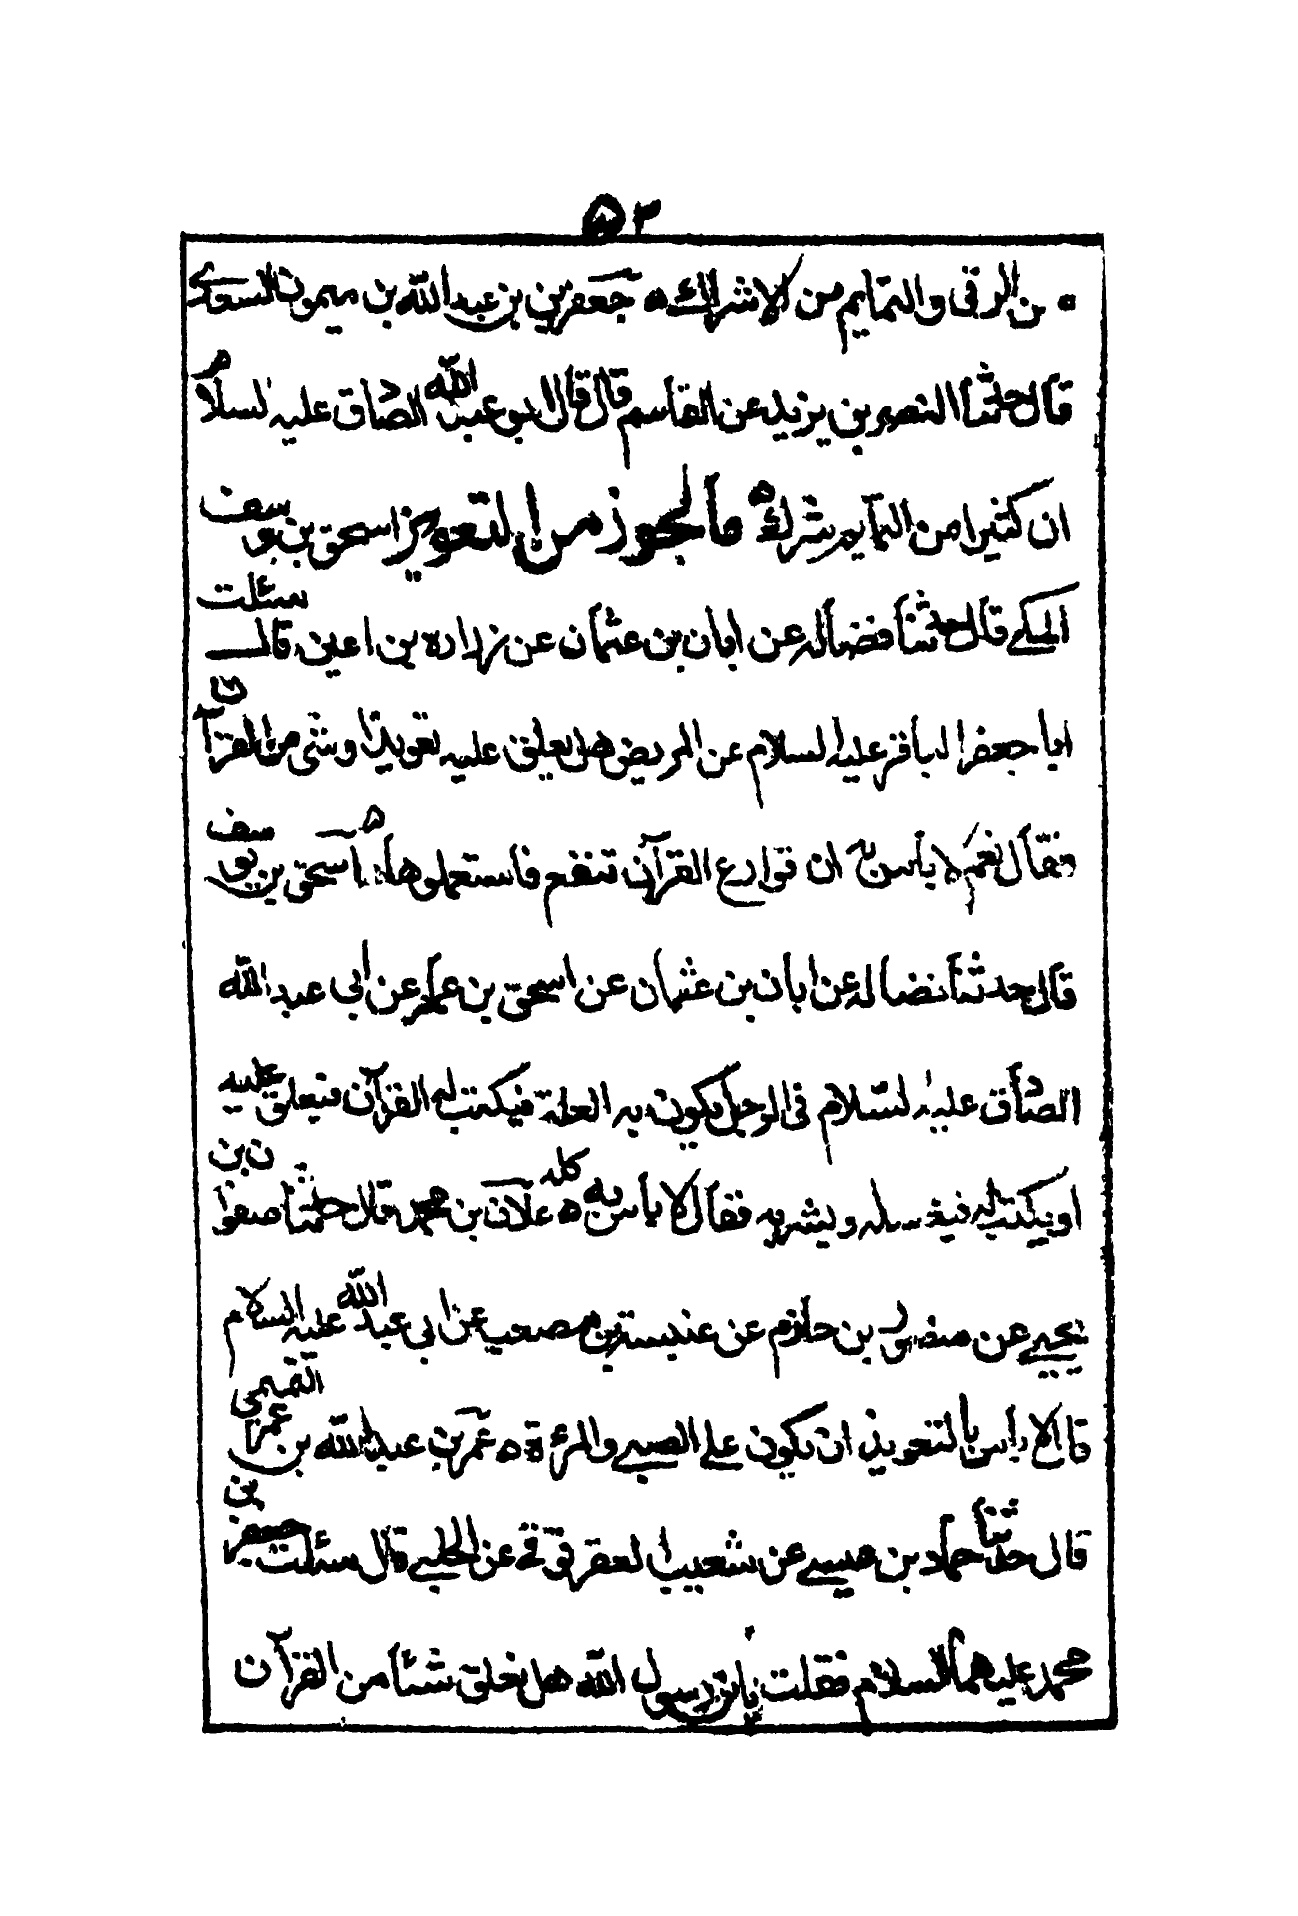 ٥٣
من الرقى والتمايم من الاشراك ه جعفر بن بن عبد الله بن ميمون السعدي
قال حدثنا النصر بن يزيد عن القاسم قال قال ابو عبد الله الصادق عليه السلام
ان كثيرا من التمايم شرك ه ما يجوز من التعويز اسحق بن يوسف
المكي قال حدثنا فضاله عن ابان بن عثمان عن زراره بن اعين قال سئلت
ابا جعفر الباقر عليه السلام عن المريض هل يعلق عليه تعويذا وشئ من القرآن
فقال نعم لا باس به ان قوارع القرآن تنفع فاستعملوها ه اسحق بن يوسف
قال حدثنا فضاله عن ابان بن عثمان عن اسحق بن عمار عن ابى عبد الله
الصادق عليه السلام فى الرجل يكون به العلة فيكتب له القرآن فيعلق عليه
او يكتب له فيغسله ويشربه فقال لا باس به كله ه علان بن محمد قال حدثنا صفوان بن
يحيى عن منصور بن حازم عن عنبسة بن مصعب عن ابى عبد الله عليه السلام
قال لا باس بالتعويذ ان يكون على الصبى والمرءة ه عمر بن عبد الله بن عمر القميى
قال حدثنا حماد بن عيسى عن شعيب العقرقوقى عن الحلبى قال سئلت جعفر بن
محمد عليهما السلام فقلت يا بن رسول الله هل نعلق شئا من القرآن